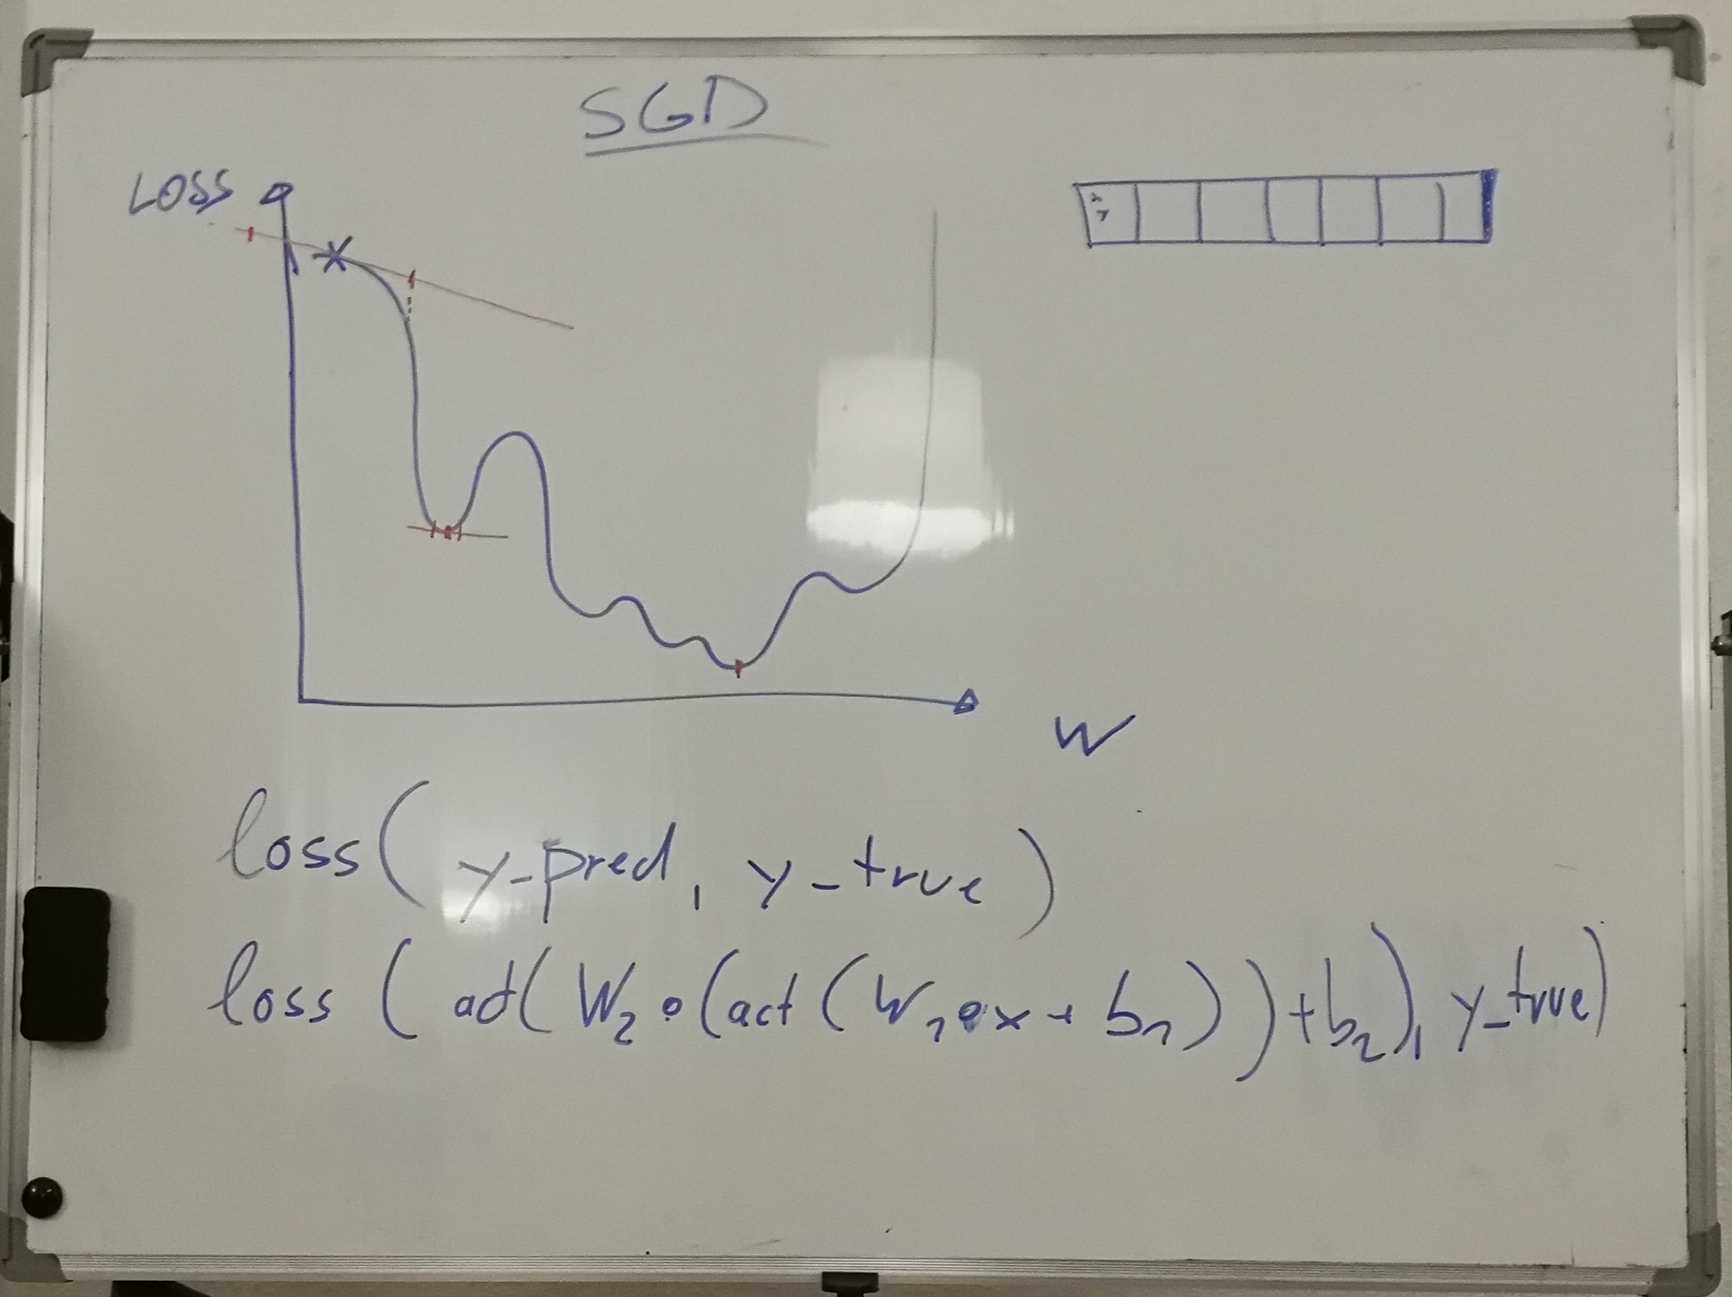 SGD
LOSS
W
loss( y_pred, y_true )
loss ( act( W₂ • (act ( W₁ • x + b₁ ) ) + b₂ ), y_true )